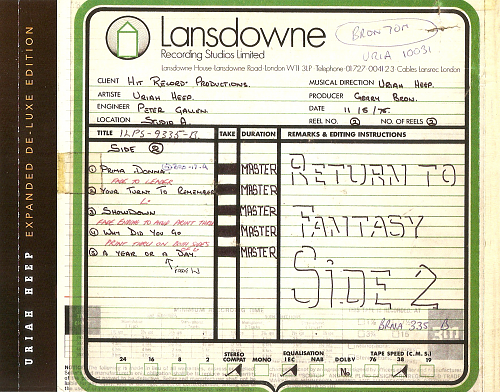 URIAH HEEP EXPANDED DE-LUXE EDITION
Lansdowne
Recording Studios Limited
Lansdowne House Lansdowne Road London W11 3LP Telephone 01 727 0041 2 3 Cables Lansrec London
BRONTOM
URIA 10031
CLIENT HIT RECORD PRODUCTIONS.
MUSICAL DIRECTION URIAH HEEP.
ARTISTE URIAH HEEP.
PRODUCER GERRY BRON.
ENGINEER PETER GALLEN.
DATE 11/5/75.
LOCATION STUDIO A.
REEL NO. 2 NO. OF REELS 2
TITLE ILPS-9335-B
TAKE DURATION REMARKS & EDITING INSTRUCTIONS
SIDE 2
1 PRIMA DONNA MASTER
FADE TO LEADER
2 YOUR TURN TO REMEMBER MASTER
3 SHOWDOWN MASTER
FADE ENDING TO AVOID PRINT THRU
4 WHY DID YOU GO MASTER
PRINT THRU ON BOTH SIDES
5 A YEAR OR A DAY. MASTER
RETURN TO
FANTASY
SIDE 2
BRNA 335 B
24 16 8 2 STEREO COMPAT MONO EQUALISATION IEC NAB DOLBY TAPE SPEED (C.M.S.) 76 38 19